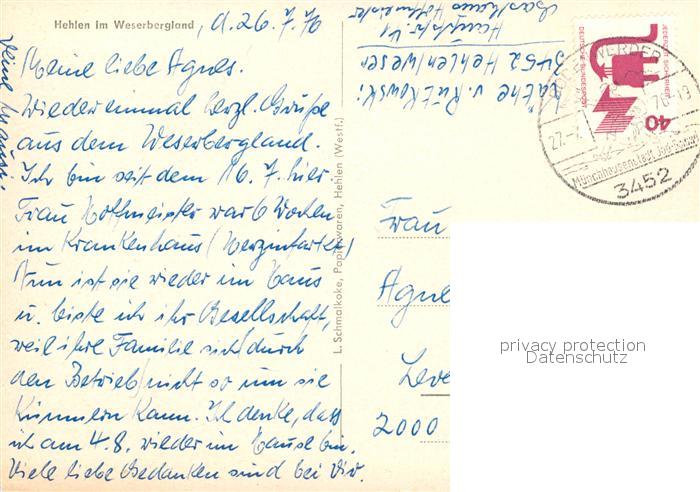 Hehlen im Weserbergland
, d. 26. 7. 76
Meine liebe Agnes.
Wieder einmal herzl. Grüße
aus dem Weserbergland.
Ich bin seit dem 16. 7. hier
Frau Hofmeister war 6 Wochen
im Krankenhaus (Herzinfarkt)
Nun ist sie wieder im Haus
u. biete ich ihr Gesellschaft,
weil ihre Familie sich (durch
den Betrieb) nicht so um sie
kümmern kann. Ich denke, dass
ich am 4. 8. wieder im Hause bin.
Viele liebe Gedanken sind bei Dir.
Deine
L. Schmalkoke, Papierwaren, Hehlen (Westf.)
Käthe v. Rutkowski
3452 Hehlen/Weser
Hauptstr. 41
Gasthaus Hofmeister
JEDERZEIT SICHERHEIT
DEUTSCHE BUNDESPOST
40
Münchhausenstadt
3452
Frau
Agne
Leve
2000
privacy protection
Datenschutz